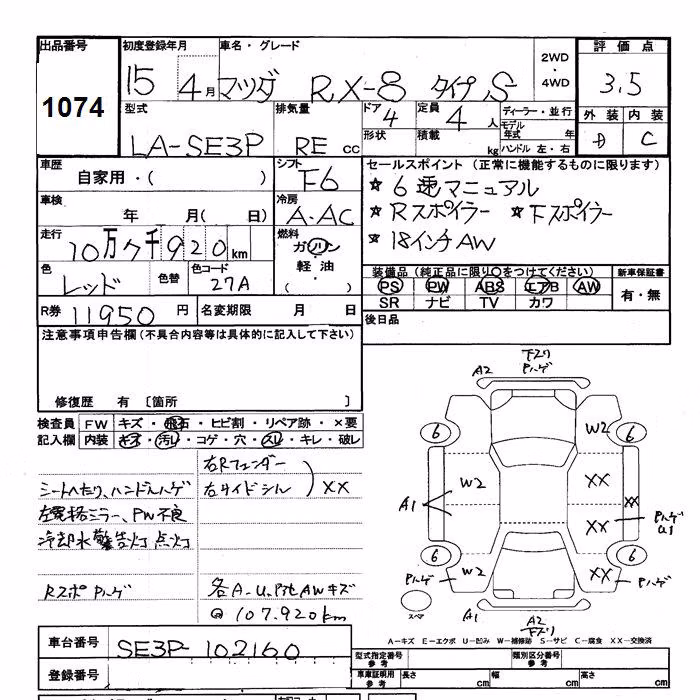 出品番号 初度登録年月 車名・グレード 2WD・4WD 評価点
1074 15 4月 マツダ RX-8 タイプS 3.5
型式 排気量 ドア 4 定員 4人 ディーラー・並行 外装 内装
LA-SE3P RE cc 形状 積載 kg モデル年式 年 ハンドル 左・右 C
車歴 シフト セールスポイント(正常に機能するものに限ります)
自家用・( ) F6 ☆ 6速マニュアル
車検 冷房 ☆ Rスポイラー ☆ Fスポイラー
年 月( 日) A・AC ☆ 18インチAW
走行 燃料
10万7千920km ガソリン
色 色替 色コード 軽油 装備品(純正品に限り〇をつけてください) 新車保証書
レッド 27A ( ) PS PW ABS エアB AW 有・無
SR ナビ TV カワ
R券 11950円 名変期限 月 日 後日品
注意事項申告欄(不具合内容等は具体的に記入して下さい)
修復歴 有〔箇所 〕
下スリ
A2 Pハゲ
検査員 FW キズ・飛石・ヒビ割・リペア跡・×要
記入欄 内装 キズ・汚レ・コゲ・穴・スレ・キレ・破レ
6 W2 6
右Rフェンダー
シートへたり、ハンドルハゲ 右サイドシル XX
W2 XX
A1 XX
左電格ミラー、PW不良 XX Pハゲ U1
冷却水警告灯点灯
6 6
Pハゲ W2 XX Pハゲ
Rスポ Pハゲ 各A-U、Pit AWキズ
@107,920km
スペア A1 A2 下スリ
A-キズ E-エクボ U-凹み W-補修跡 S-サビ C-腐食 XX-交換済
車台番号 SE3P-102160
型式指定番号 参考 類別区分番号 参考
登録番号 車庫証明用 参考 長さ cm 幅 cm 高さ cm